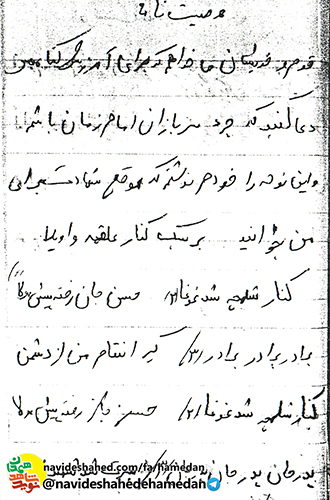 وصیت نامه
قوم و خویشان می خواهم که برای آمرزش گناهان من
دعا کنید که جزء سربازان امام زمان باشم
و این نوحه را خودم نوشتم که موقع شهادت برای
من بخوانید بر سبک کنار علقمه واویلا
کنار شلمچه شد غوغا (۲) حسن جان رفته پیش مولا
برادر برادر برادر (۳) گیر انتقام من از دشمن
کنار شلمچه شد غوغا (۲) حسن رفته پیش مولا
پدر جان پدر جان
navideshahed.com/fa/hamedan
@navideshahedehamedan